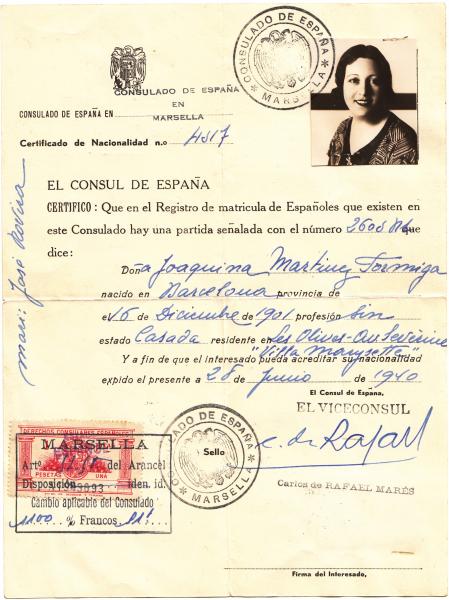 CONSULADO DE ESPAÑA
MARSELLA
CONSULADO DE ESPAÑA
EN
MARSELLA
CONSULADO DE ESPAÑA EN
Certificado de Nacionalidad n.o 4517
EL CONSUL DE ESPAÑA
CERTIFICO: Que en el Registro de matricula de Españoles que existen
en este Consulado hay una partida señalada con el número 2605 que
dice:
Doña Joaquina Martinez Formiga
nacido en Barcelona provincia de
el 16 de Diciembre de 1901 profesión Sin
estado Casada residente en Les Olives-Av. Severine
"Villa Marysette"
Y a fin de que el interesado pueda acreditar su nacionalidad
expido el presente a 28 de Junio de 1940
El Consul de España,
EL VICECONSUL
C. de Rafael
Carlos de RAFAEL MARÉS
CONSULADO DE ESPAÑA
Sello
MARSELLA
DERECHOS CONSULARES
PESETAS UNA
MARSELLA
Artº del Arancel
Disposición iden. id.
Cambio aplicable del Consulado
1100 % Francos 11!
Firma del Interesado,
mari: José Rovira